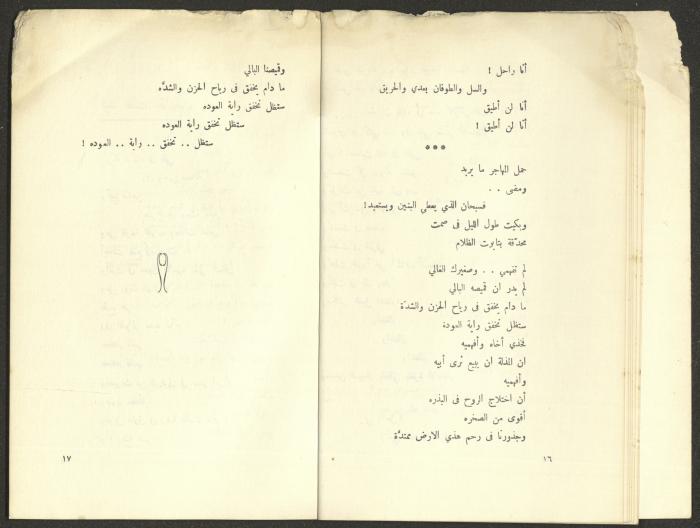 أنا راحل !
والسل والطوفان بعدي والحريق
أنا لن أطيق
أنا لن أطيق !
***
حمل المهاجر ما يريد
ومضى . .
فسبحان الذي يعطي البنين ويستعيد !
وبكيت طول الليل فى صمت
محدّقة بتابوت الظلام
لم تفهمي . . وصغيرك الغالي
لم يدر ان قميصه البالي
ما دام يخفق فى رياح الحزن والشدّة
ستظل تخفق راية العودة
فخذي أخاه وأفهميه
ان المذلة ان يبيع ثرى أبيه
وأفهميه
أن اختلاج الروح فى البذره
أقوى من الصخره
وجذورنا فى رحم هذي الارض ممتدّة
١٦
وقميصنا البالي
ما دام يخفق فى رياح الحزن والشدّه
ستظل تخفق راية العوده
ستظل تخفق راية العوده
ستظل . . تخفق . . راية . . العوده !
١٧